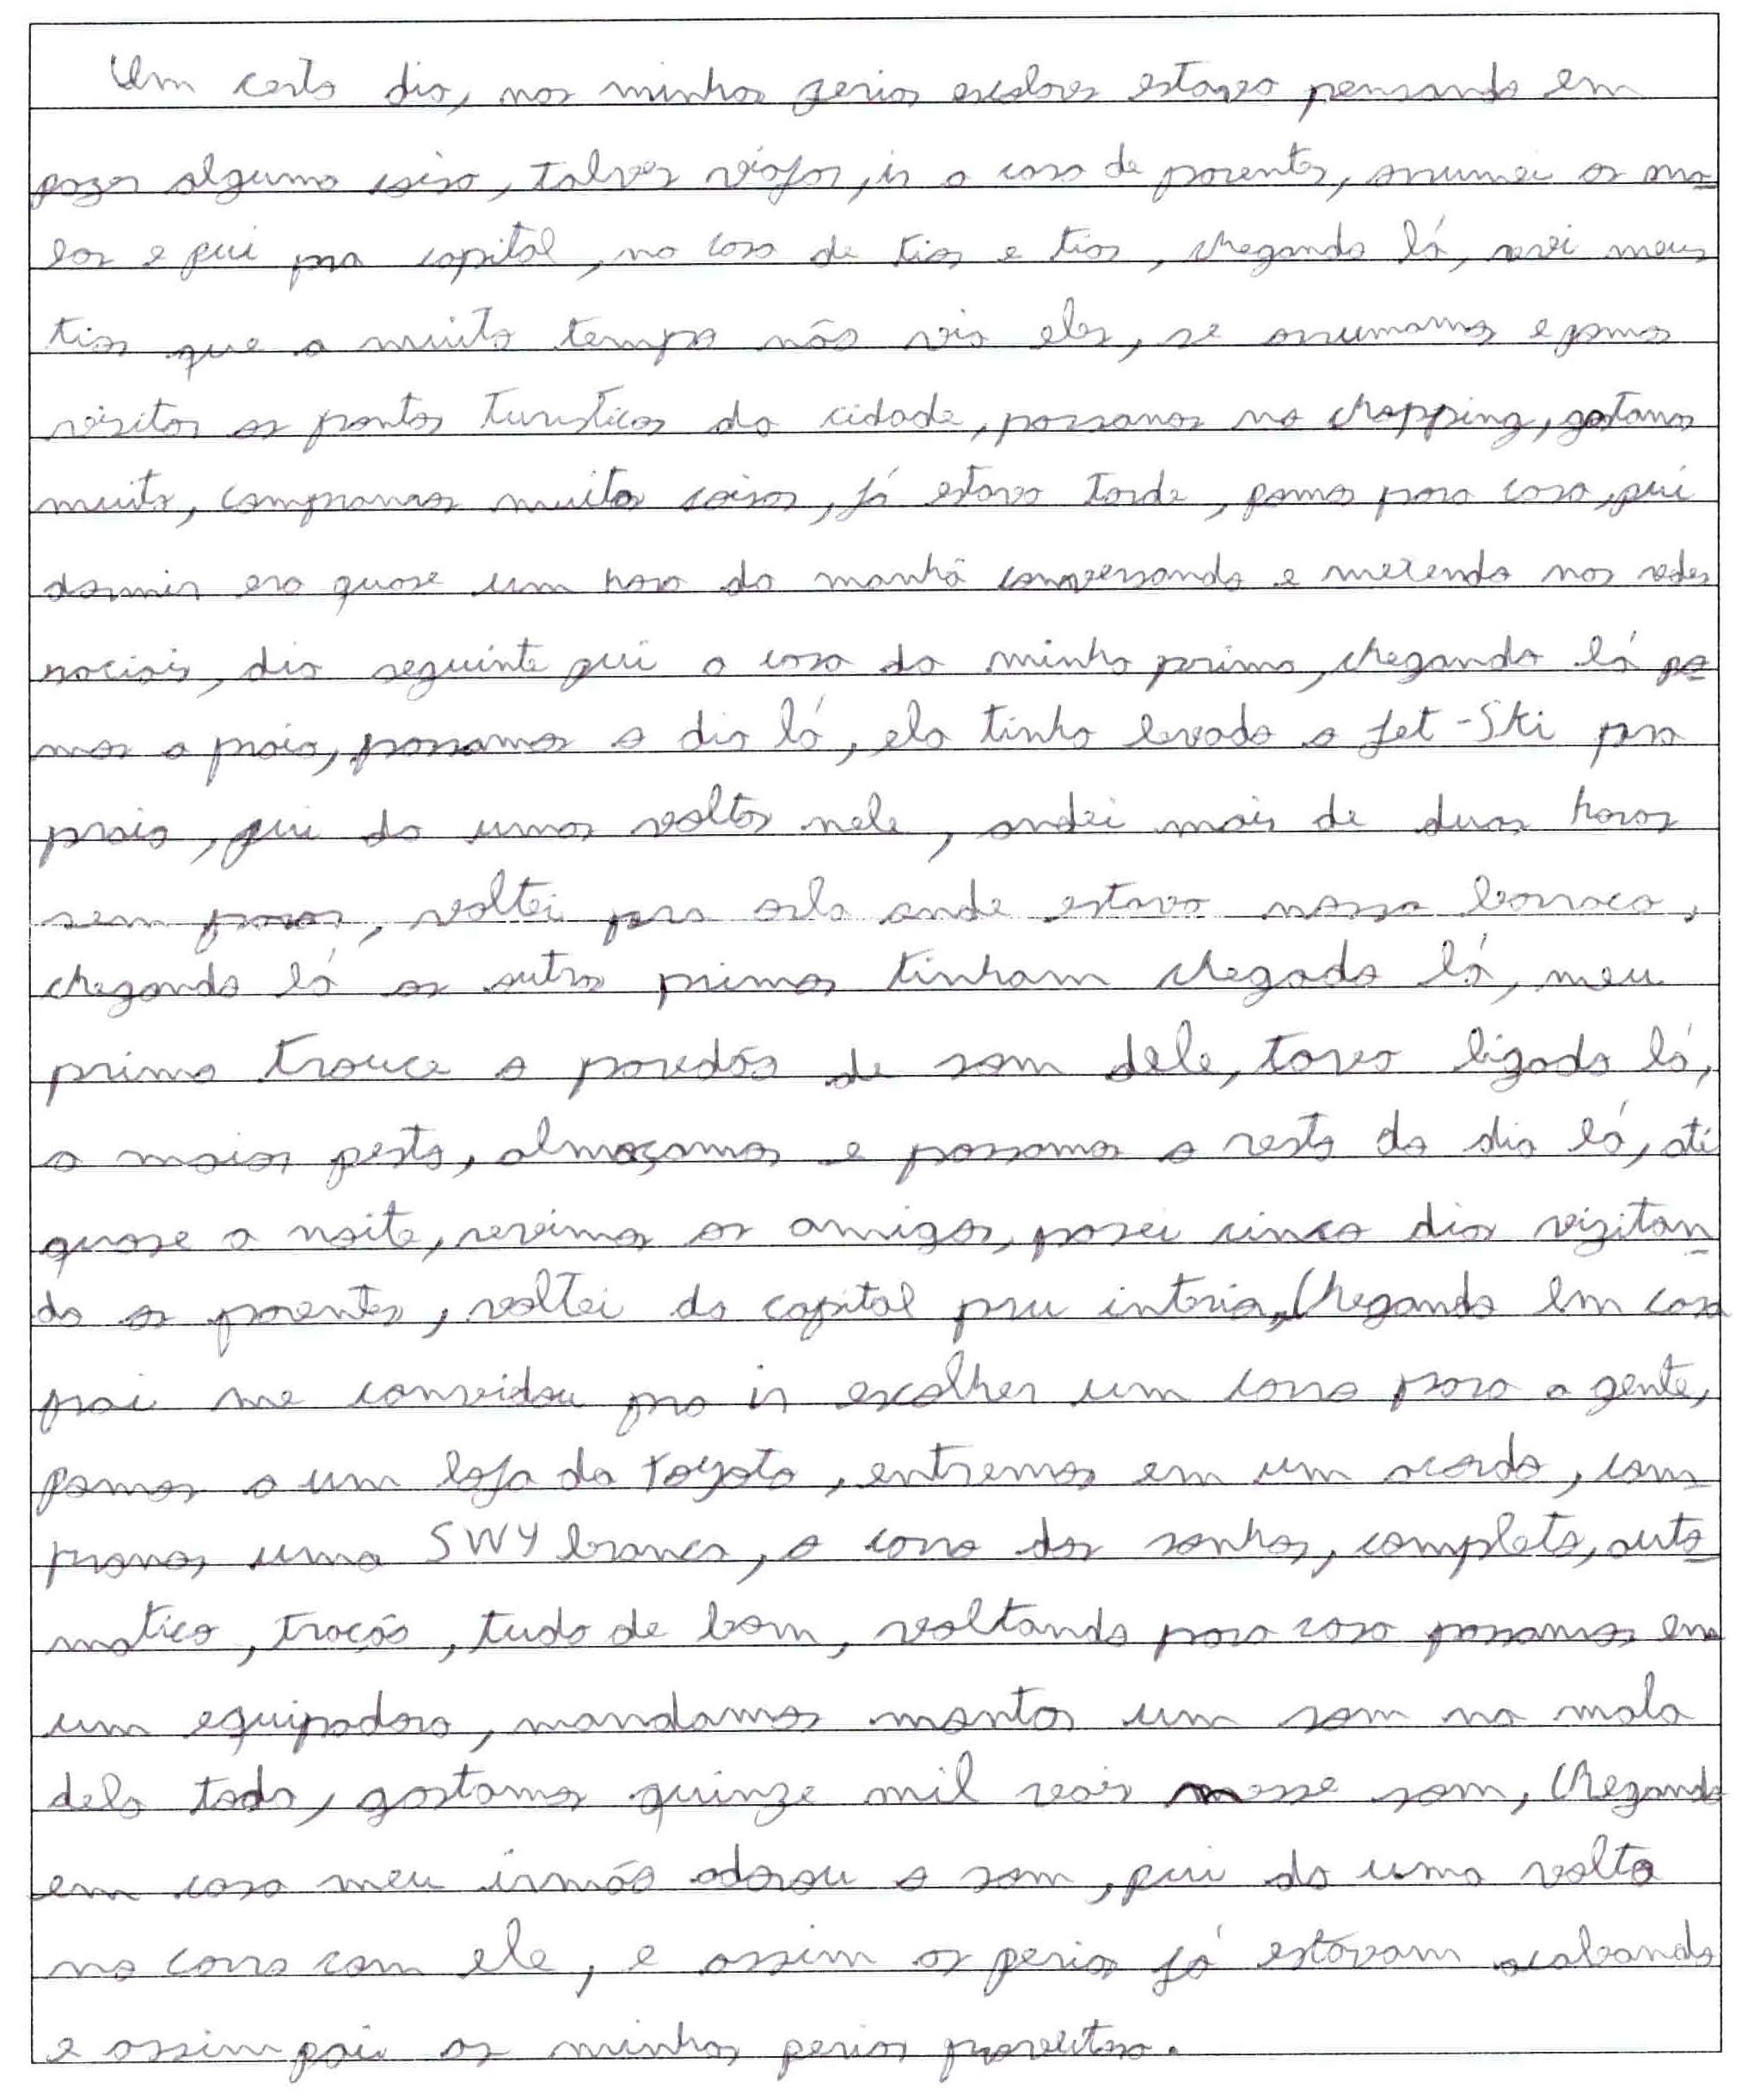 Um certo dia, nas minhas ferias escolares estava pensando em
fazer alguma coisa, talves viajar, ir a casa de parentes, arrumei as ma-
las e fui pra capital, na casa de tios e tias, chegando lá, revi meus
tios que a muito tempo não via eles, se arrumamos e fomos
visitar os pontos turisticos da cidade, passamos no chopping, gastamos
muito, compramos muitas coisas, já estava tarde, fomos para casa, fui
dormir era quase um hora da manhã conversando e mexendo nas redes
sociais, dia seguinte fui a casa da minha prima, chegando lá fo-
mos a praia, passamos o dia lá, ela tinha levado o jet-ski pra
praia, fui da umas voltas nele, andei mais de duas horas
sem parar, voltei pra orla onde estava nossa barraca,
chegando lá os outro primos tinham chegado lá, meu
primo trouce o paredão de som dele, tava ligado lá,
a maior festa, almoçamos e passamos o resto do dia lá, até
quase a noite, revimos os amigos, pasei cinco dias vizitan-
do os parentes, voltei da capital pru interio, Chegando em casa
pai me convidou pra ir escolher um carro para a gente,
fomos a um loja da toyota, entremos em um acordo, com-
pramos uma SW4 branca, o carro dos sonhos, completo, auto-
matico, tração, tudo de bom, voltando para casa passamos em
um equipadora, mandamos montar um som na mala
dela todo, gastamos quinze mil reais nesse som, Chegando
em casa meu irmão adorou o som, fui da uma volta
no carro com ele, e assim as ferias já estavam acabando
e assim foi as minhas ferias proveitosa.